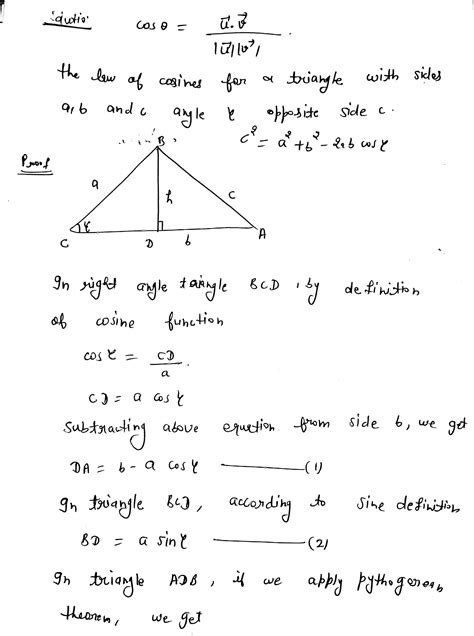 Solution
cos θ = u⃗.v⃗ / |u⃗||v⃗|
the law of cosines for a triangle with sides
a,b and c angle γ opposite side c.
c² = a² + b² - 2ab cos γ
Proof
B
a
h
c
C
γ
D
b
A
In right angle triangle BCD, by definition
of cosine function
cos γ = CD / a.
CD = a cos γ
Subtracting above equation from side b, we get
DA = b - a cos γ ——— (1)
In triangle BCD, according to sine definition
BD = a sin γ ——— (2)
In triangle ADB, if we apply pythagorean
theorem, we get